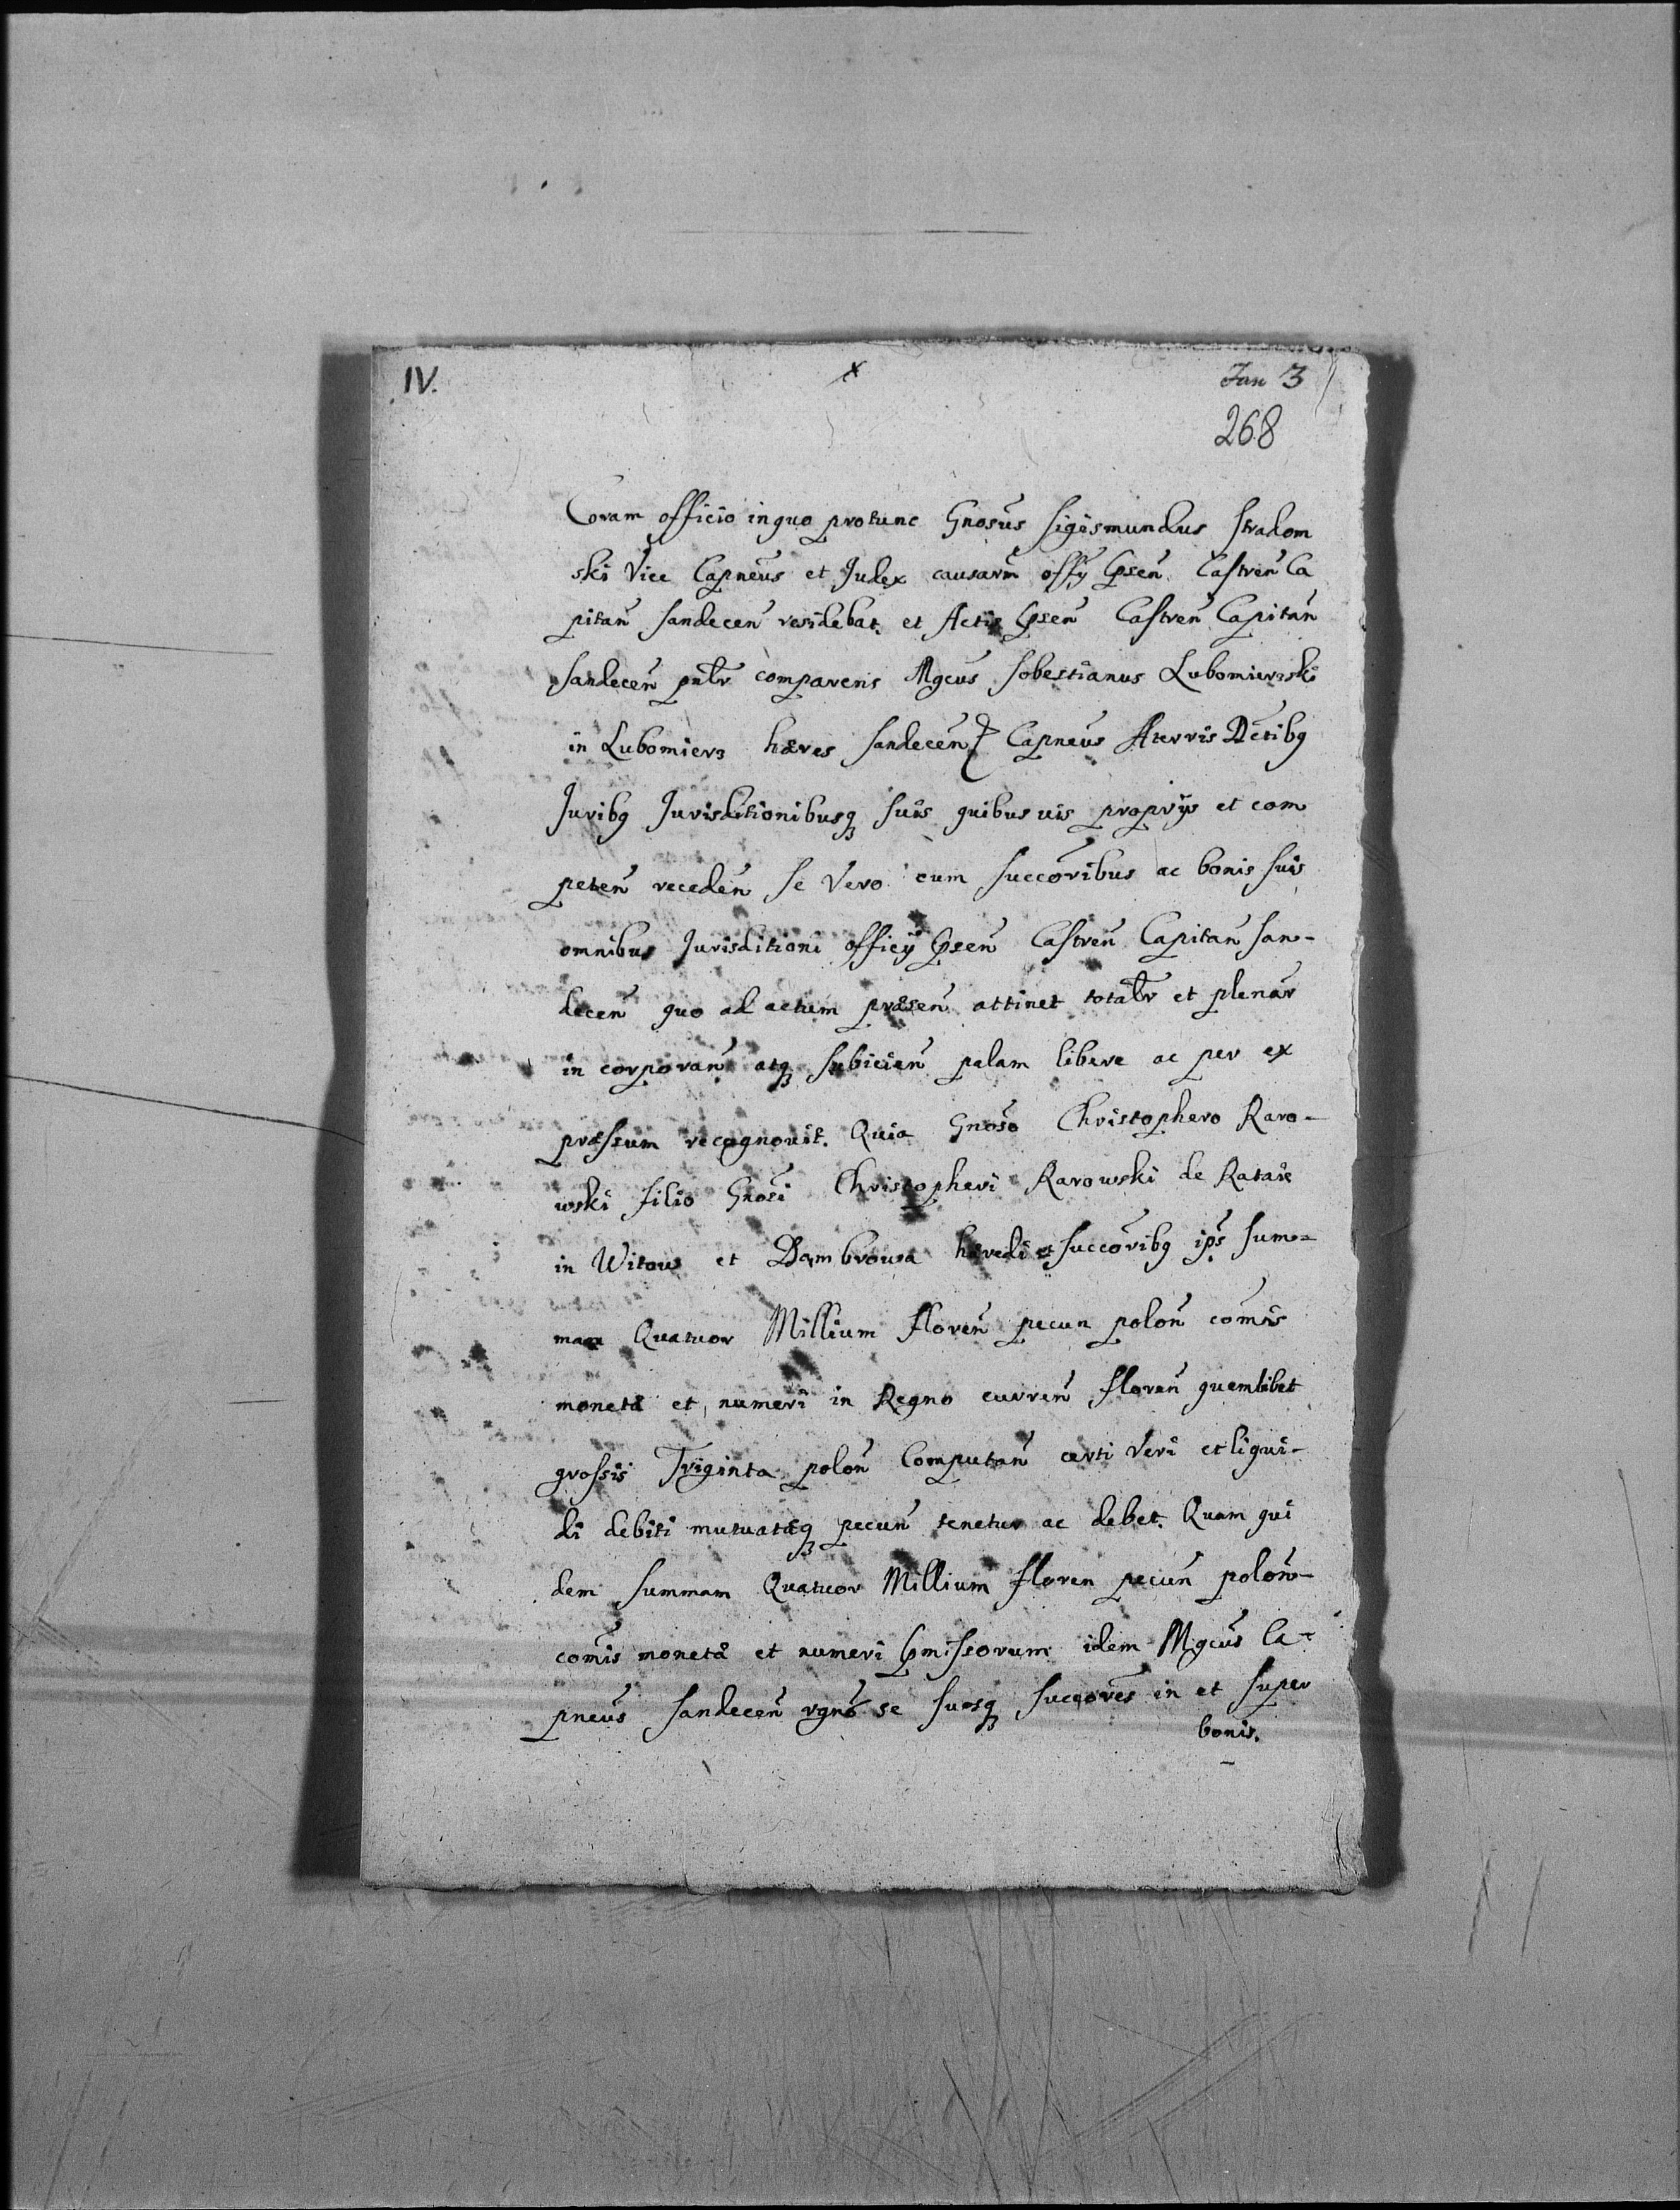 IV.
x
Jan 3
268
Coram officio in quo protunc Gnosus Sigismundus Stradom
ski Vice Capneus et Judex causarm offy Psen Castren Ca
pitan Sandecen residebat. et Actis Psen Castren Capitan
Sandecen pntlr comparens Mgcus Sobestianus Lubomierski
in Lubomierz hæres Sandecen Capneus Aterris Dctibq
Juribq Jurisditionibusq suis quibusuis proprijs et com
peten receden se Vero cum succoribus ac bonis suis
omnibus Jurisditioni officy Psen Castren Capitan San-
decen quo ad actum præsen attinet totalr et plenar
in corporan atq subicien palam libere ac per ex
præssum recognouit. Quia Gnoso Christophero Raro-
wski filio Gnosi Christopheri Rarowski de Rataie
in Witow et Dambrowa hæredi et succoribq ips sum-
mam Quatuor Millium floren pecun polon comis
monetæ et numeri in Regno curren floren quemlibet
grossis Triginta polon Computan certi Veri et liqui-
di debiti mutuatæq pecun tenetur ac debet. Quam qui
dem summam Quatuor Millium floren pecun polon-
comis monetæ et numeri Pmissorum idem Mgcus Ca-
pneus Sandecen rgno se suosq succores in et super
bonis.